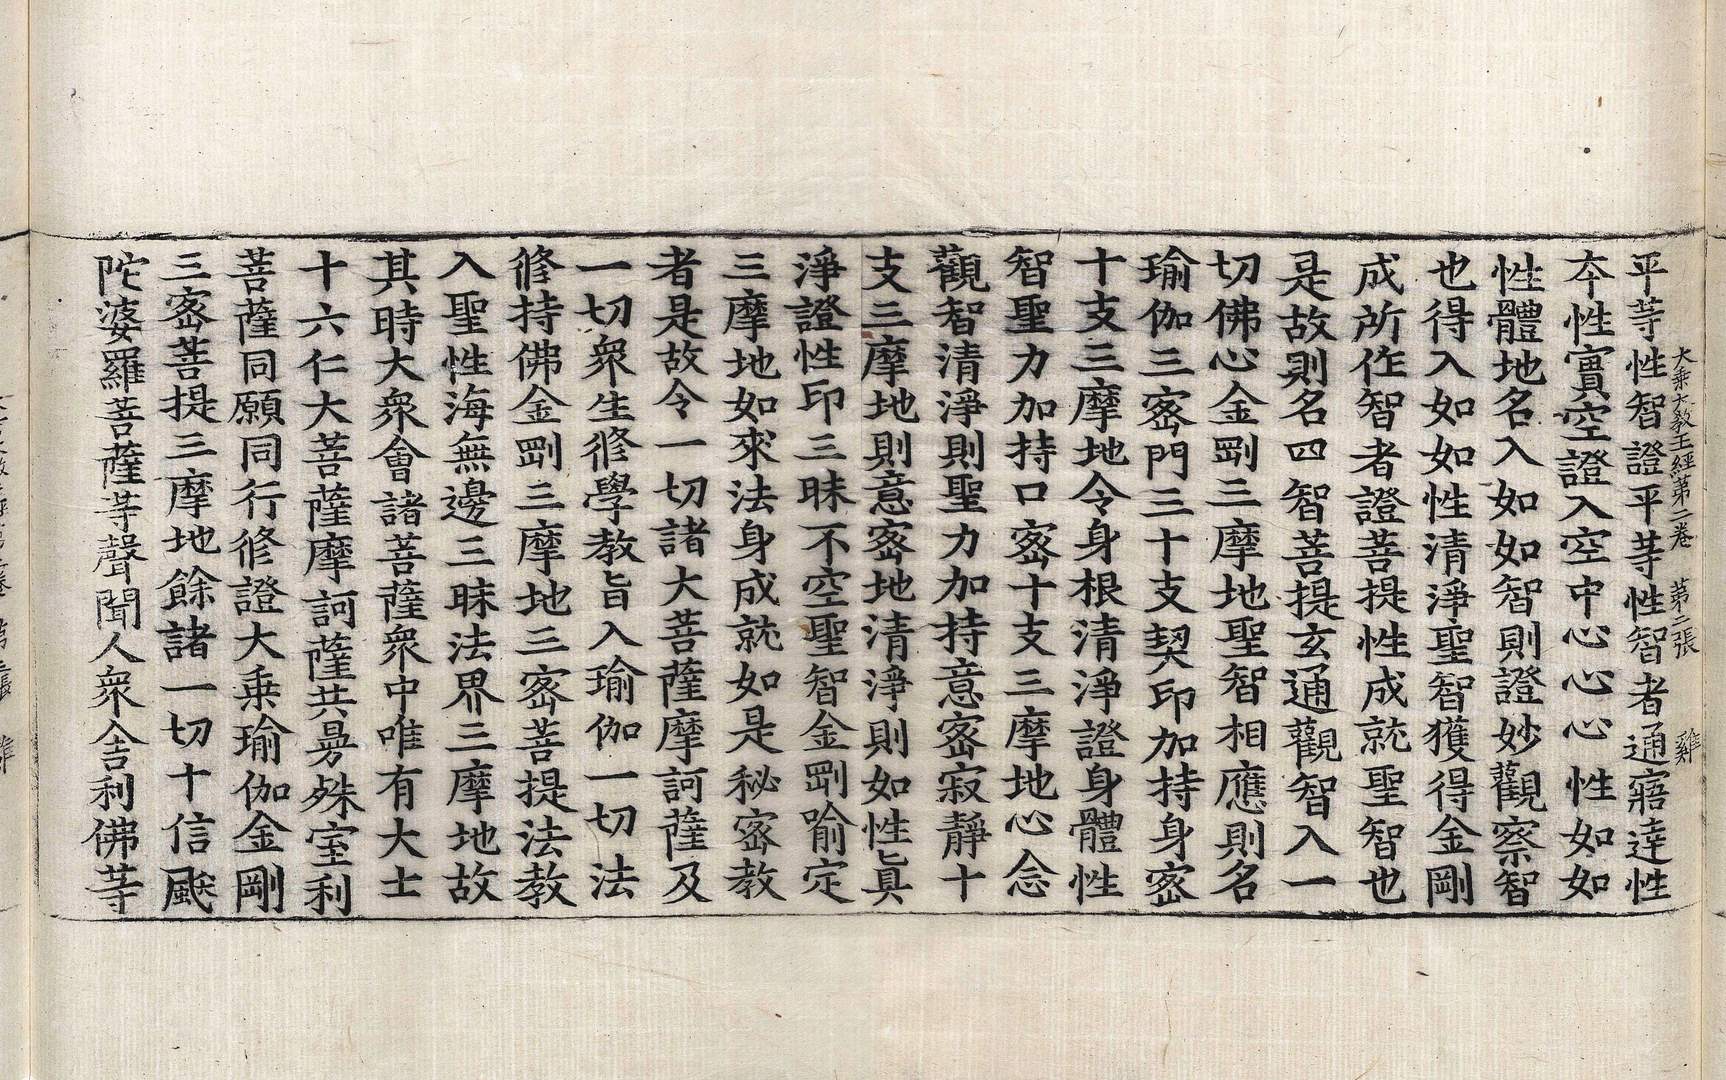 平等性智證平等性智者通寤達性
大乘大教王經第二卷 第二張 雞
夲性實空證入空中心心心性如如
性體地名入如如智則證妙觀察智
也得入如如性清淨聖智獲得金剛
成所作智者證菩提性成就聖智也
是故則名四智菩提玄通觀智入一
切佛心金剛三摩地聖智相應則名
瑜伽三密門三十支契印加持身密
十支三摩地令身根清淨證身體性
智聖力加持口密十支三摩地心念
觀智清淨則聖力加持意密寂靜十
支三摩地則意密地清淨則如性真
淨證性印三昧不空聖智金剛喻定
三摩地如來法身成就如是秘密教
者是故令一切諸大菩薩摩訶薩及
一切衆生修學教旨入瑜伽一切法
修持佛金剛三摩地三密菩提法教
入聖性海無邊三昧法界三摩地故
其時大衆會諸菩薩衆中唯有大士
十六仁大菩薩摩訶薩共曼殊室利
菩薩同願同行修證大乘瑜伽金剛
三密菩提三摩地餘諸一切十信颰
陀婆羅菩薩等聲聞人衆舍利佛等